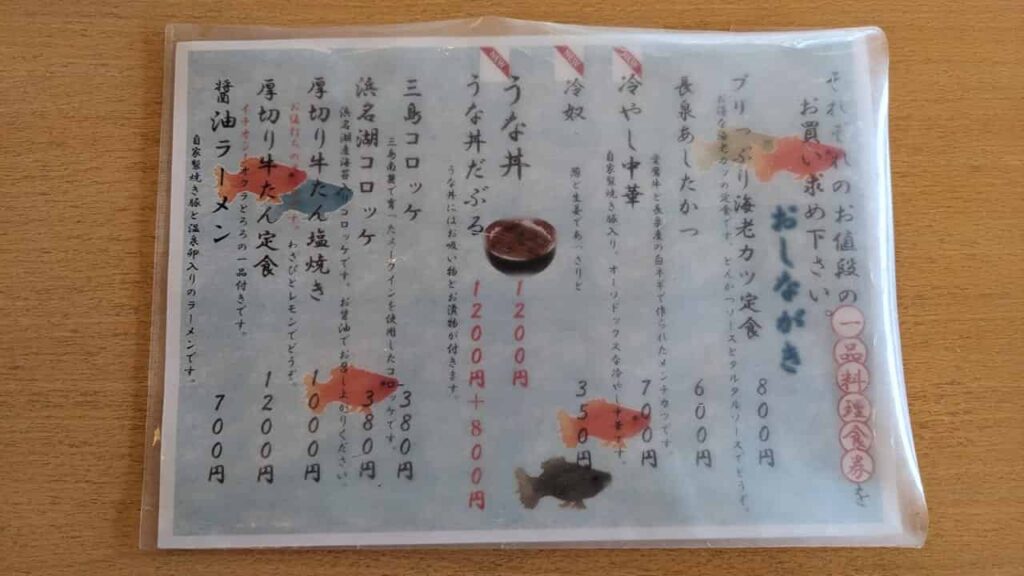 それぞれのお値段の一品料理食券を
お買い求め下さい。
おしながき
プリっぷり海老カツ定食 800円
お得な海老カツの定食です。とんかつソースとタルタルソースでどうぞ。
長泉あしたかつ 600円
愛鷹牛と長泉産の白ネギで作られたメンチかつです
NEW
冷やし中華 700円
自家製焼き豚入り、オーソドックスな冷やし中華です。
NEW
冷奴 350円
葱と生姜であっさりと
NEW
うな丼 1200円
うな丼だぶる 1200円+800円
うな丼にはお吸い物とお漬物が付きます。
三島コロッケ 380円
三島の麓で育ったメークインを使用したコロッケです。
浜名湖コロッケ 380円
浜名湖産海苔入りコロッケです。お醤油でお召し上がりください。
厚切り牛たん塩焼き 1000円
お値打ちの わさびとレモンでどうぞ。
厚切り牛たん定食 1200円
イチオシ オクラとろろの一品付きです。
醤油ラーメン 700円
自家製焼き豚と温泉卵入りのラーメンです。